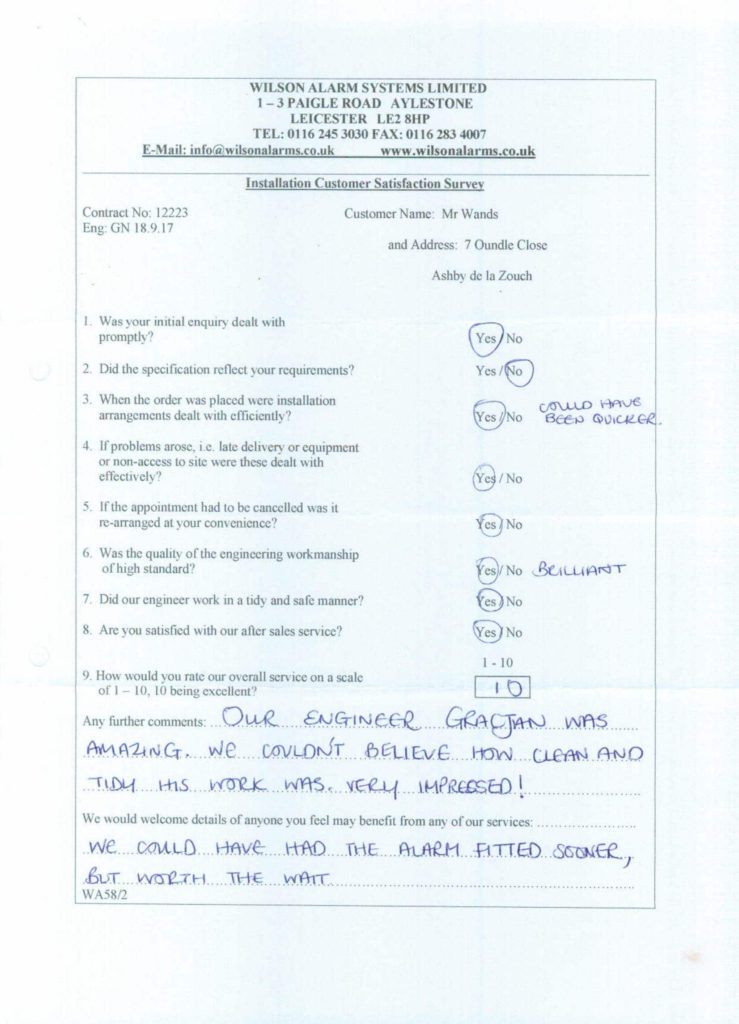 WILSON ALARM SYSTEMS LIMITED
1 – 3 PAIGLE ROAD AYLESTONE
LEICESTER LE2 8HP
TEL: 0116 245 3030 FAX: 0116 283 4007
E-Mail: info@wilsonalarms.co.uk www.wilsonalarms.co.uk
Installation Customer Satisfaction Survey
Contract No: 12223 Customer Name: Mr Wands
Eng: GN 18.9.17
and Address: 7 Oundle Close
Ashby de la Zouch
1. Was your initial enquiry dealt with
promptly? Yes / No
2. Did the specification reflect your requirements? Yes / No
3. When the order was placed were installation COULD HAVE
arrangements dealt with efficiently? Yes / No BEEN QUICKER.
4. If problems arose, i.e. late delivery or equipment
or non-access to site were these dealt with
effectively? Yes / No
5. If the appointment had to be cancelled was it
re-arranged at your convenience? Yes / No
6. Was the quality of the engineering workmanship
of high standard? Yes / No BRILLIANT
7. Did our engineer work in a tidy and safe manner? Yes / No
8. Are you satisfied with our after sales service? Yes / No
1 - 10
9. How would you rate our overall service on a scale
of 1 – 10, 10 being excellent? 10
Any further comments: OUR ENGINEER GRACJAN WAS
AMAZING. WE COULDN'T BELIEVE HOW CLEAN AND
TIDY HIS WORK WAS. VERY IMPRESSED!
We would welcome details of anyone you feel may benefit from any of our services:
WE COULD HAVE HAD THE ALARM FITTED SOONER,
BUT WORTH THE WAIT
WA58/2